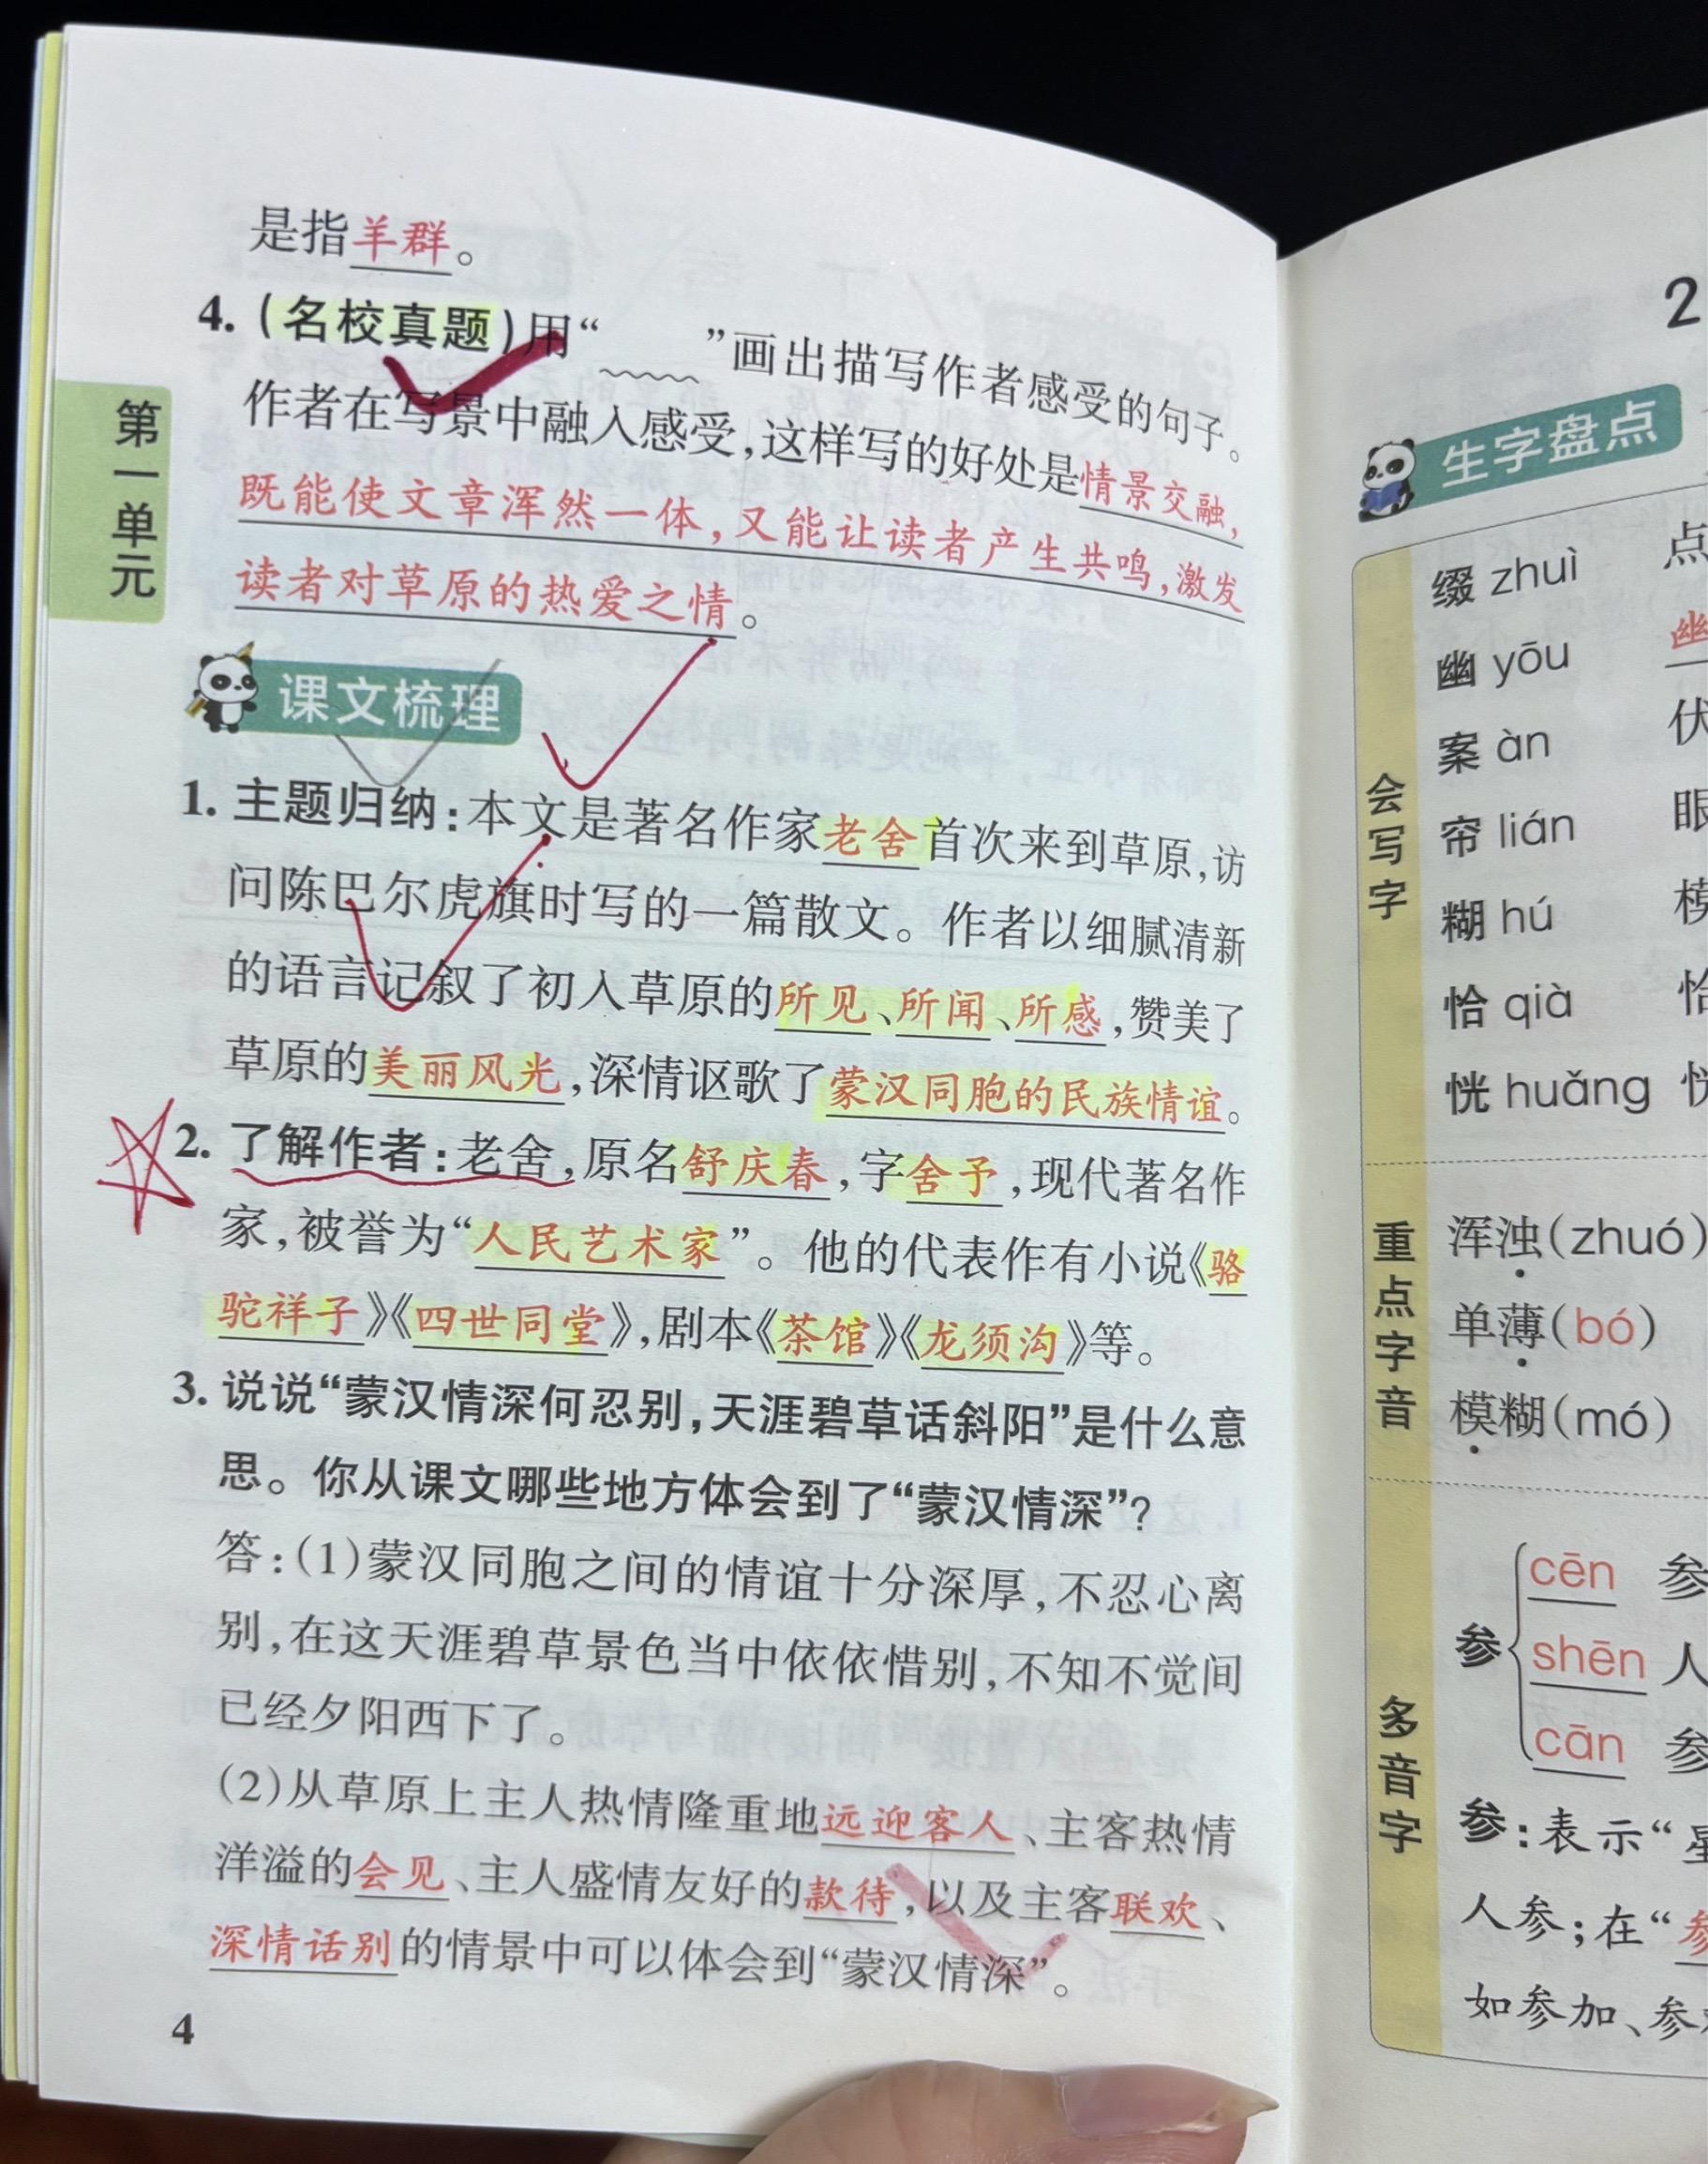 是指羊群。
4.(名校真题)用“﹏﹏”画出描写作者感受的句子。
作者在写景中融入感受,这样写的好处是情景交融,
既能使文章浑然一体,又能让读者产生共鸣,激发
读者对草原的热爱之情。
第一单元
课文梳理
1. 主题归纳:本文是著名作家老舍首次来到草原,访
问陈巴尔虎旗时写的一篇散文。作者以细腻清新
的语言记叙了初入草原的所见、所闻、所感,赞美了
草原的美丽风光,深情讴歌了蒙汉同胞的民族情谊。
2. 了解作者:老舍,原名舒庆春,字舍予,现代著名作
家,被誉为“人民艺术家”。他的代表作有小说《骆
驼祥子》《四世同堂》,剧本《茶馆》《龙须沟》等。
3. 说说“蒙汉情深何忍别,天涯碧草话斜阳”是什么意
思。你从课文哪些地方体会到了“蒙汉情深”?
答:(1)蒙汉同胞之间的情谊十分深厚,不忍心离
别,在这天涯碧草景色当中依依惜别,不知不觉间
已经夕阳西下了。
(2)从草原上主人热情隆重地远迎客人、主客热情
洋溢的会见、主人盛情友好的款待,以及主客联欢、
深情话别的情景中可以体会到“蒙汉情深”。
4
2
生字盘点
会写字
缀 zhuì 点
幽 yōu 幽
案 àn 伏
帘 lián 眼
糊 hú 模
恰 qià 恰
恍 huǎng 恍
重点字音
浑浊(zhuó)
单薄(bó)
模糊(mó)
多音字
参
cēn 参
shēn 人
cān 参
参:表示“星
人参;在“参
如参加、参